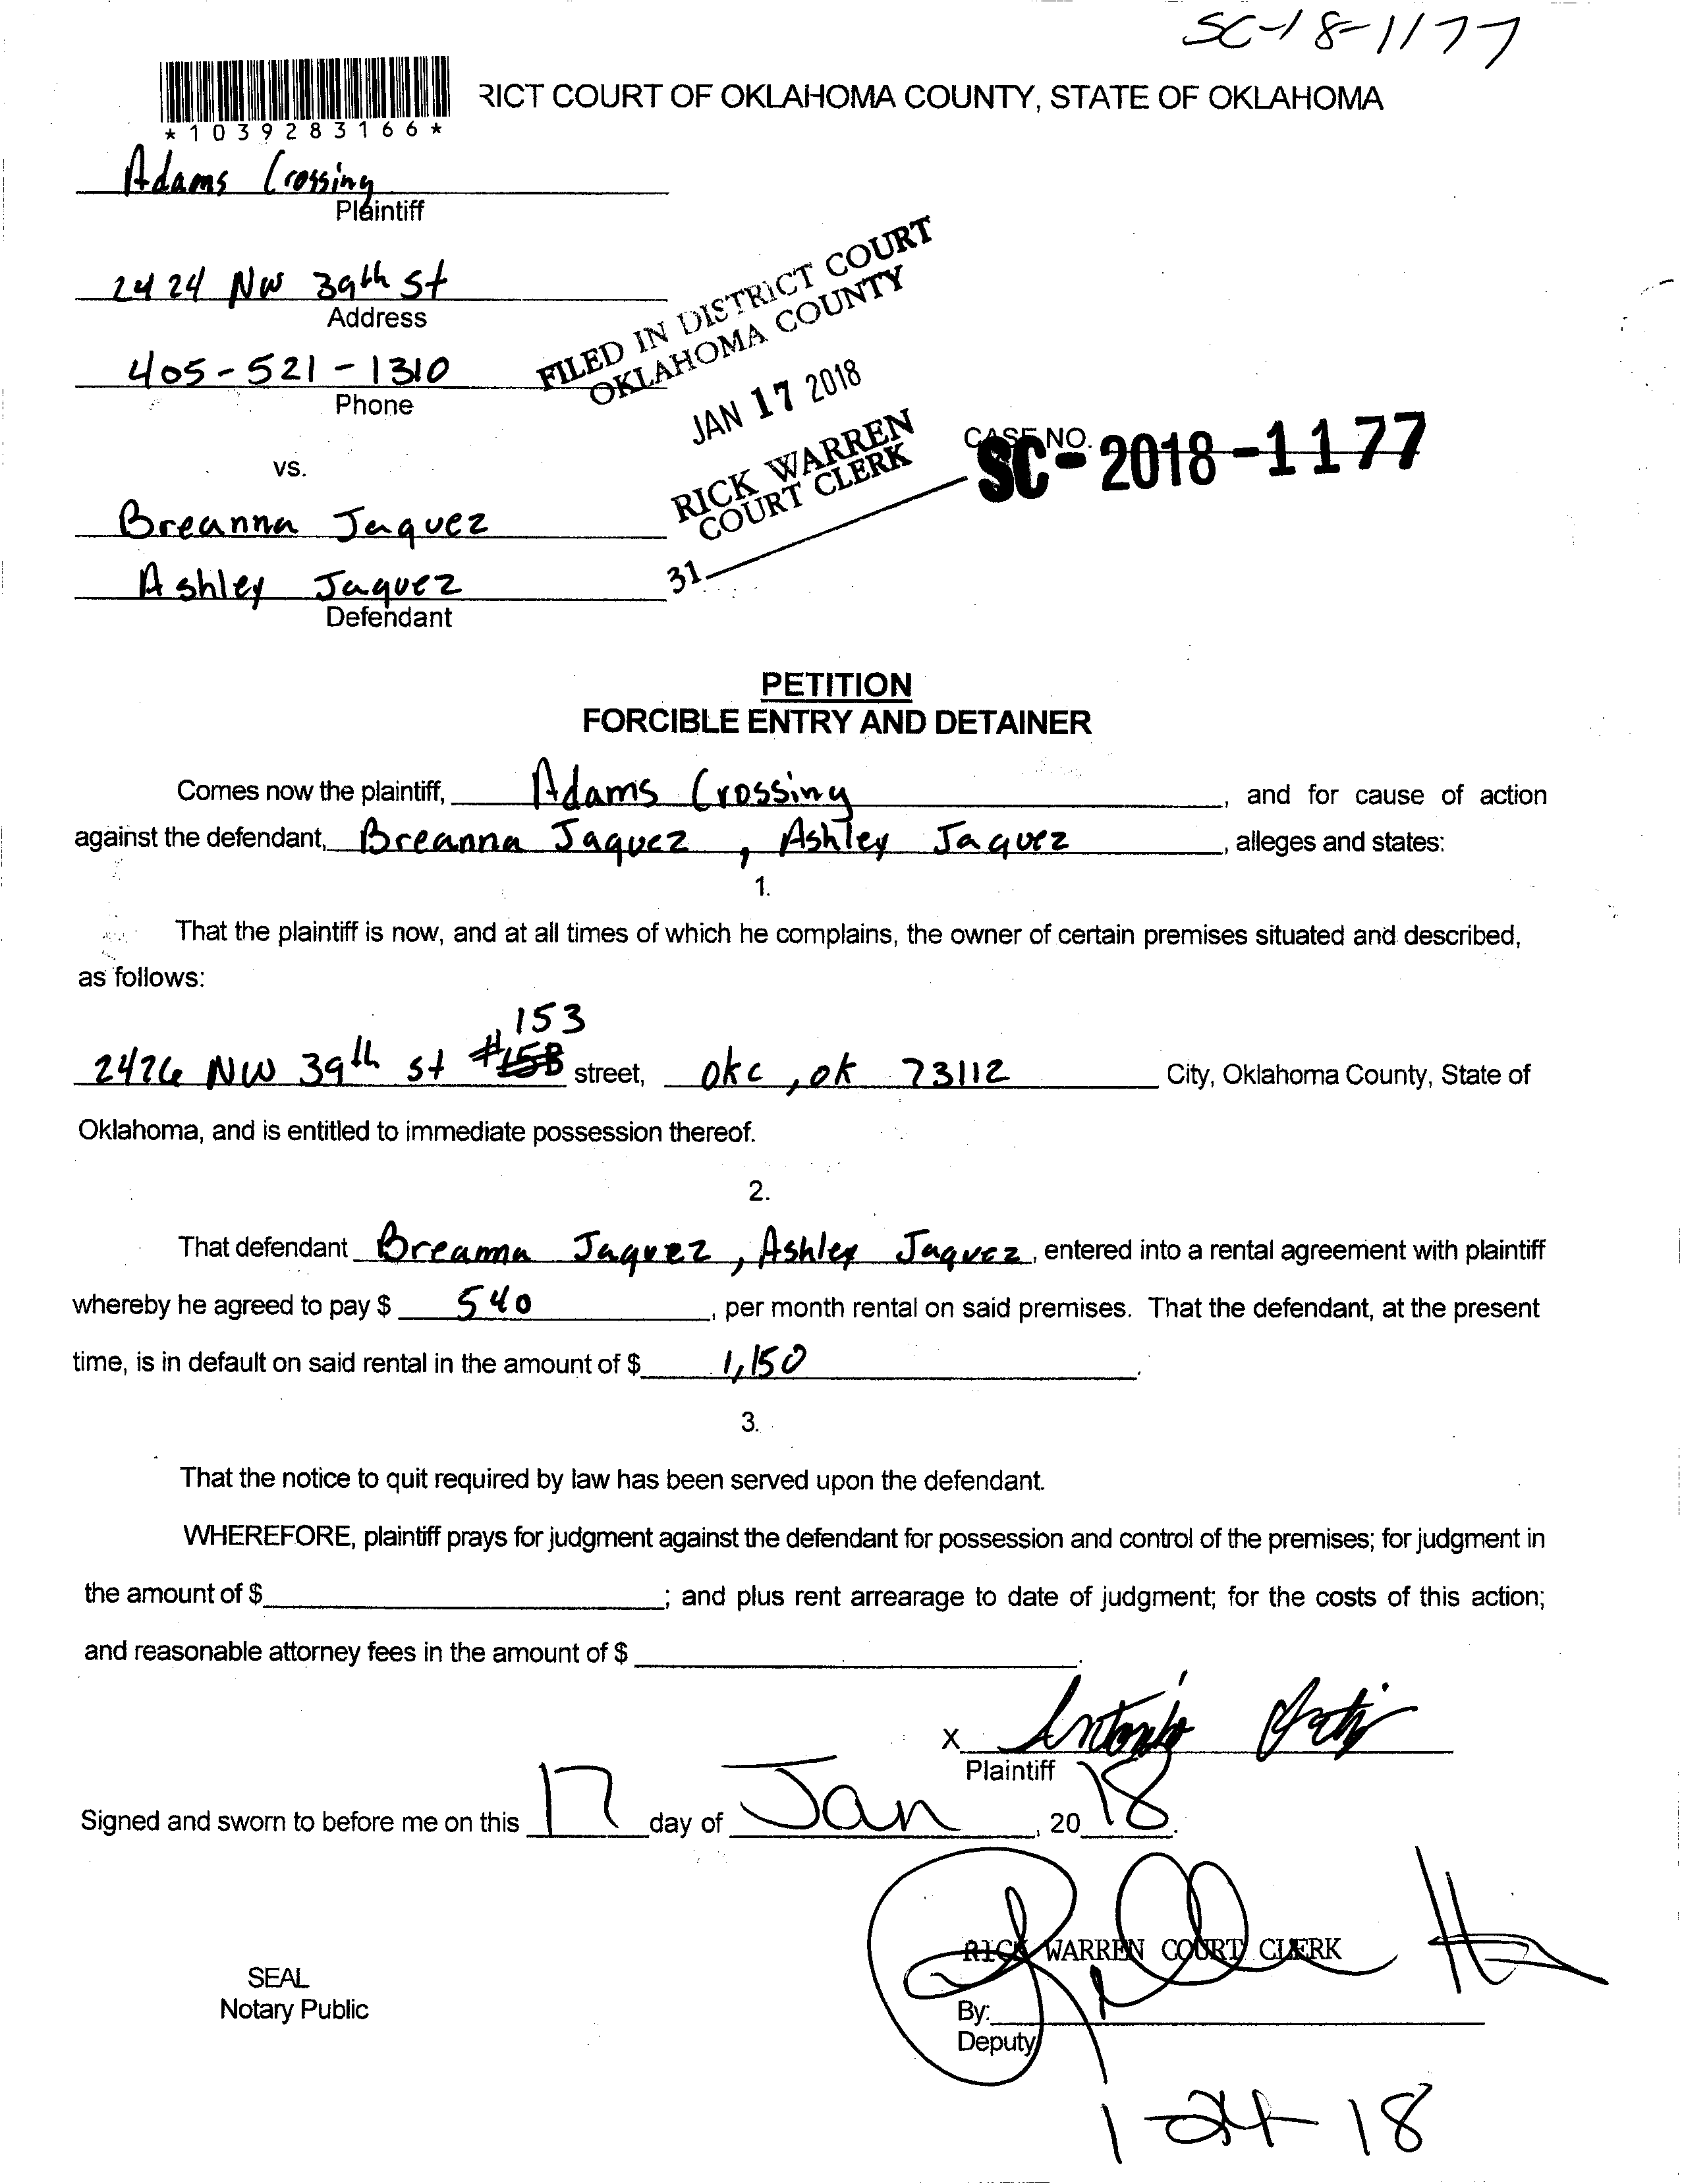 SC-18-1177
RICT COURT OF OKLAHOMA COUNTY, STATE OF OKLAHOMA
*1039283166*
Adams Crossing
Plaintiff
2424 NW 39th St
Address
405-521-1310
Phone
FILED IN DISTRICT COURT
OKLAHOMA COUNTY
JAN 17 2018
RICK WARREN
COURT CLERK
31
CASE NO.
SC-2018-1177
vs.
Breanna Jaquez
Ashley Jaquez
Defendant
PETITION
FORCIBLE ENTRY AND DETAINER
Comes now the plaintiff, Adams Crossing, and for cause of action
against the defendant, Breanna Jaquez, Ashley Jaquez, alleges and states:
1.
That the plaintiff is now, and at all times of which he complains, the owner of certain premises situated and described,
as follows:
153
2426 NW 39th st # street, okc, ok 73112 City, Oklahoma County, State of
Oklahoma, and is entitled to immediate possession thereof.
2.
That defendant Breanna Jaquez, Ashley Jaquez, entered into a rental agreement with plaintiff
whereby he agreed to pay $ 540, per month rental on said premises. That the defendant, at the present
time, is in default on said rental in the amount of $ 1,150.
3.
That the notice to quit required by law has been served upon the defendant.
WHEREFORE, plaintiff prays for judgment against the defendant for possession and control of the premises; for judgment in
the amount of $ ; and plus rent arrearage to date of judgment; for the costs of this action;
and reasonable attorney fees in the amount of $ .
X Antonio
Plaintiff
Signed and sworn to before me on this 17 day of Jan, 2018.
RICK WARREN COURT CLERK
SEAL
Notary Public
By:
Deputy
1-24-18